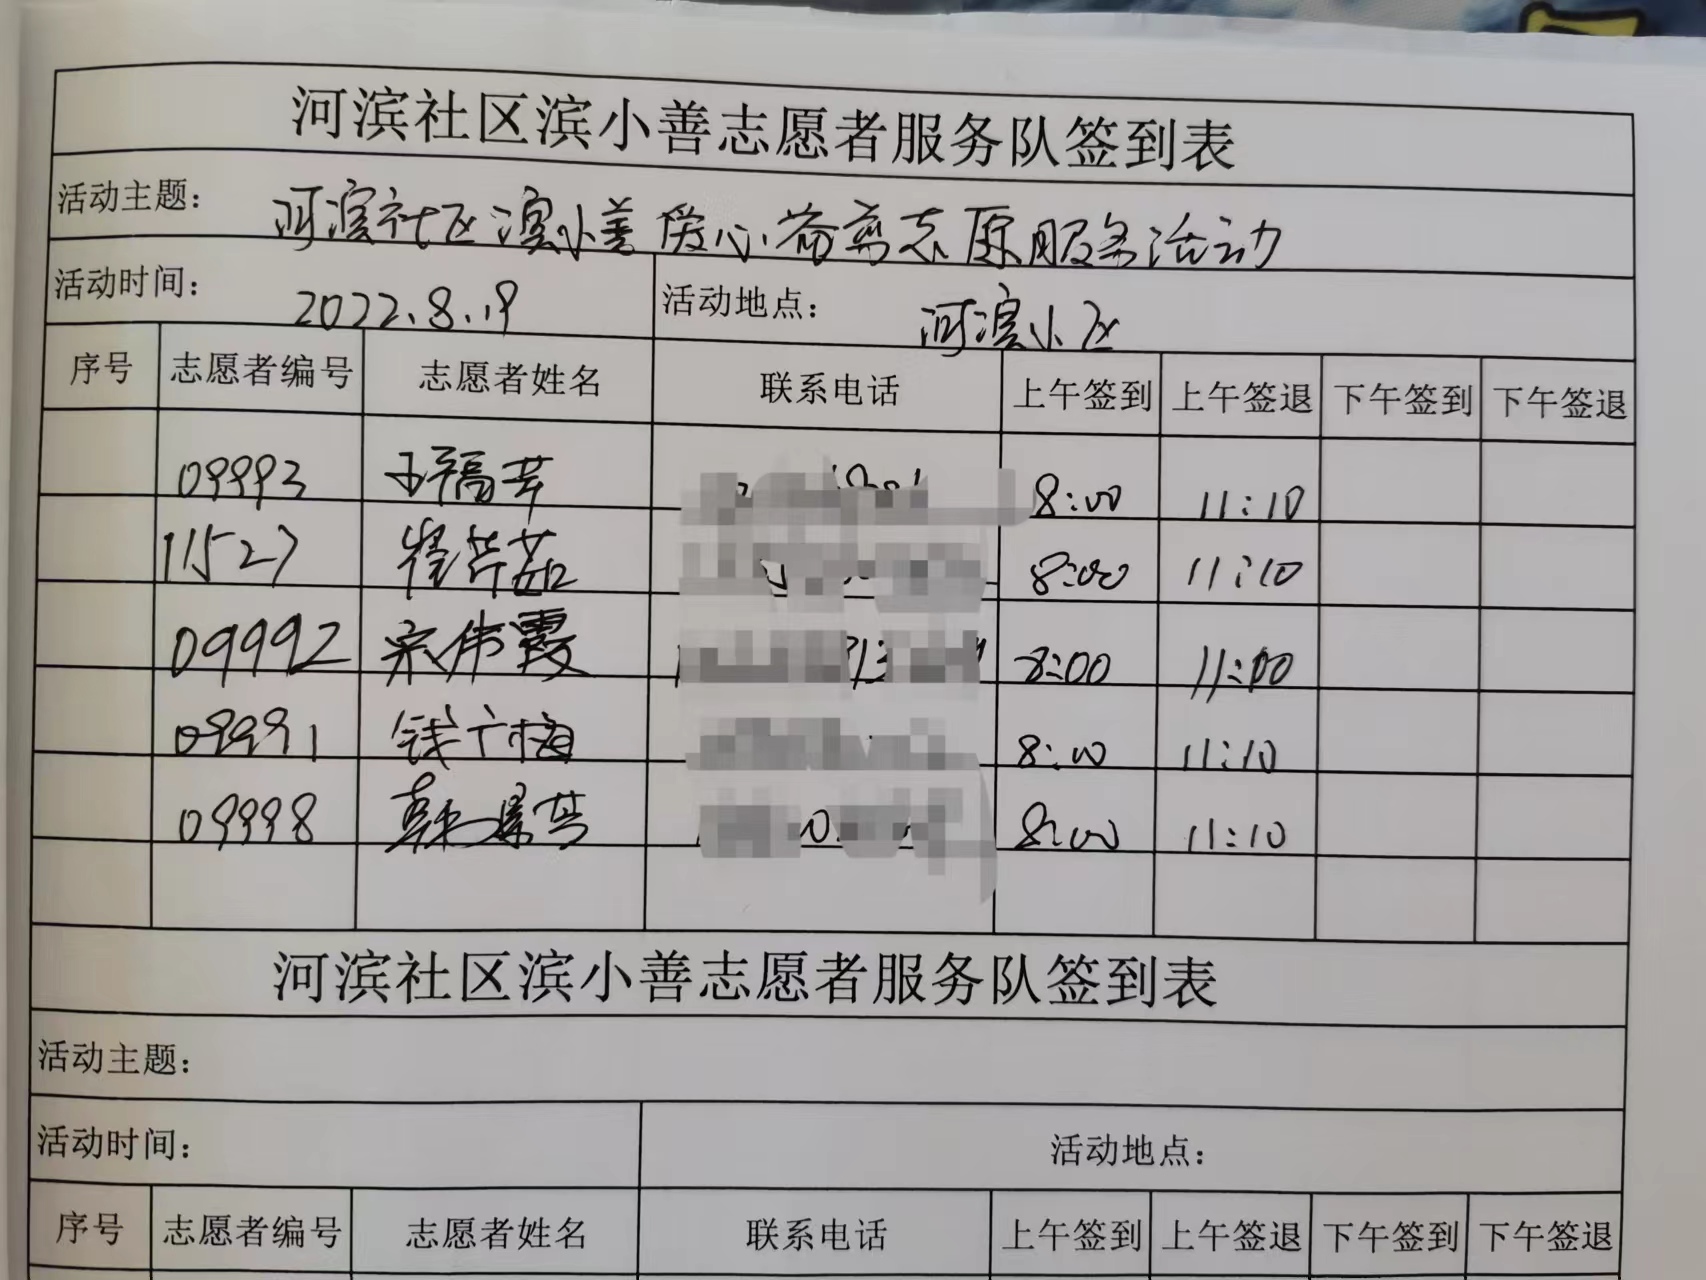 河滨社区滨小善志愿者服务队签到表
活动主题： 河滨社区滨小善爱心 志愿服务活动
活动时间： 2022.8.19 活动地点： 河滨小区
序号 志愿者编号 志愿者姓名 联系电话 上午签到 上午签退 下午签到 下午签退
09993 8:00 11:10
11527 崔芹茹 8:00 11:10
09992 宋伟霞 8:00 11:00
09991 钱广梅 8:00 11:10
09998 8:00 11:10
河滨社区滨小善志愿者服务队签到表
活动主题：
活动时间： 活动地点：
序号 志愿者编号 志愿者姓名 联系电话 上午签到 上午签退 下午签到 下午签退